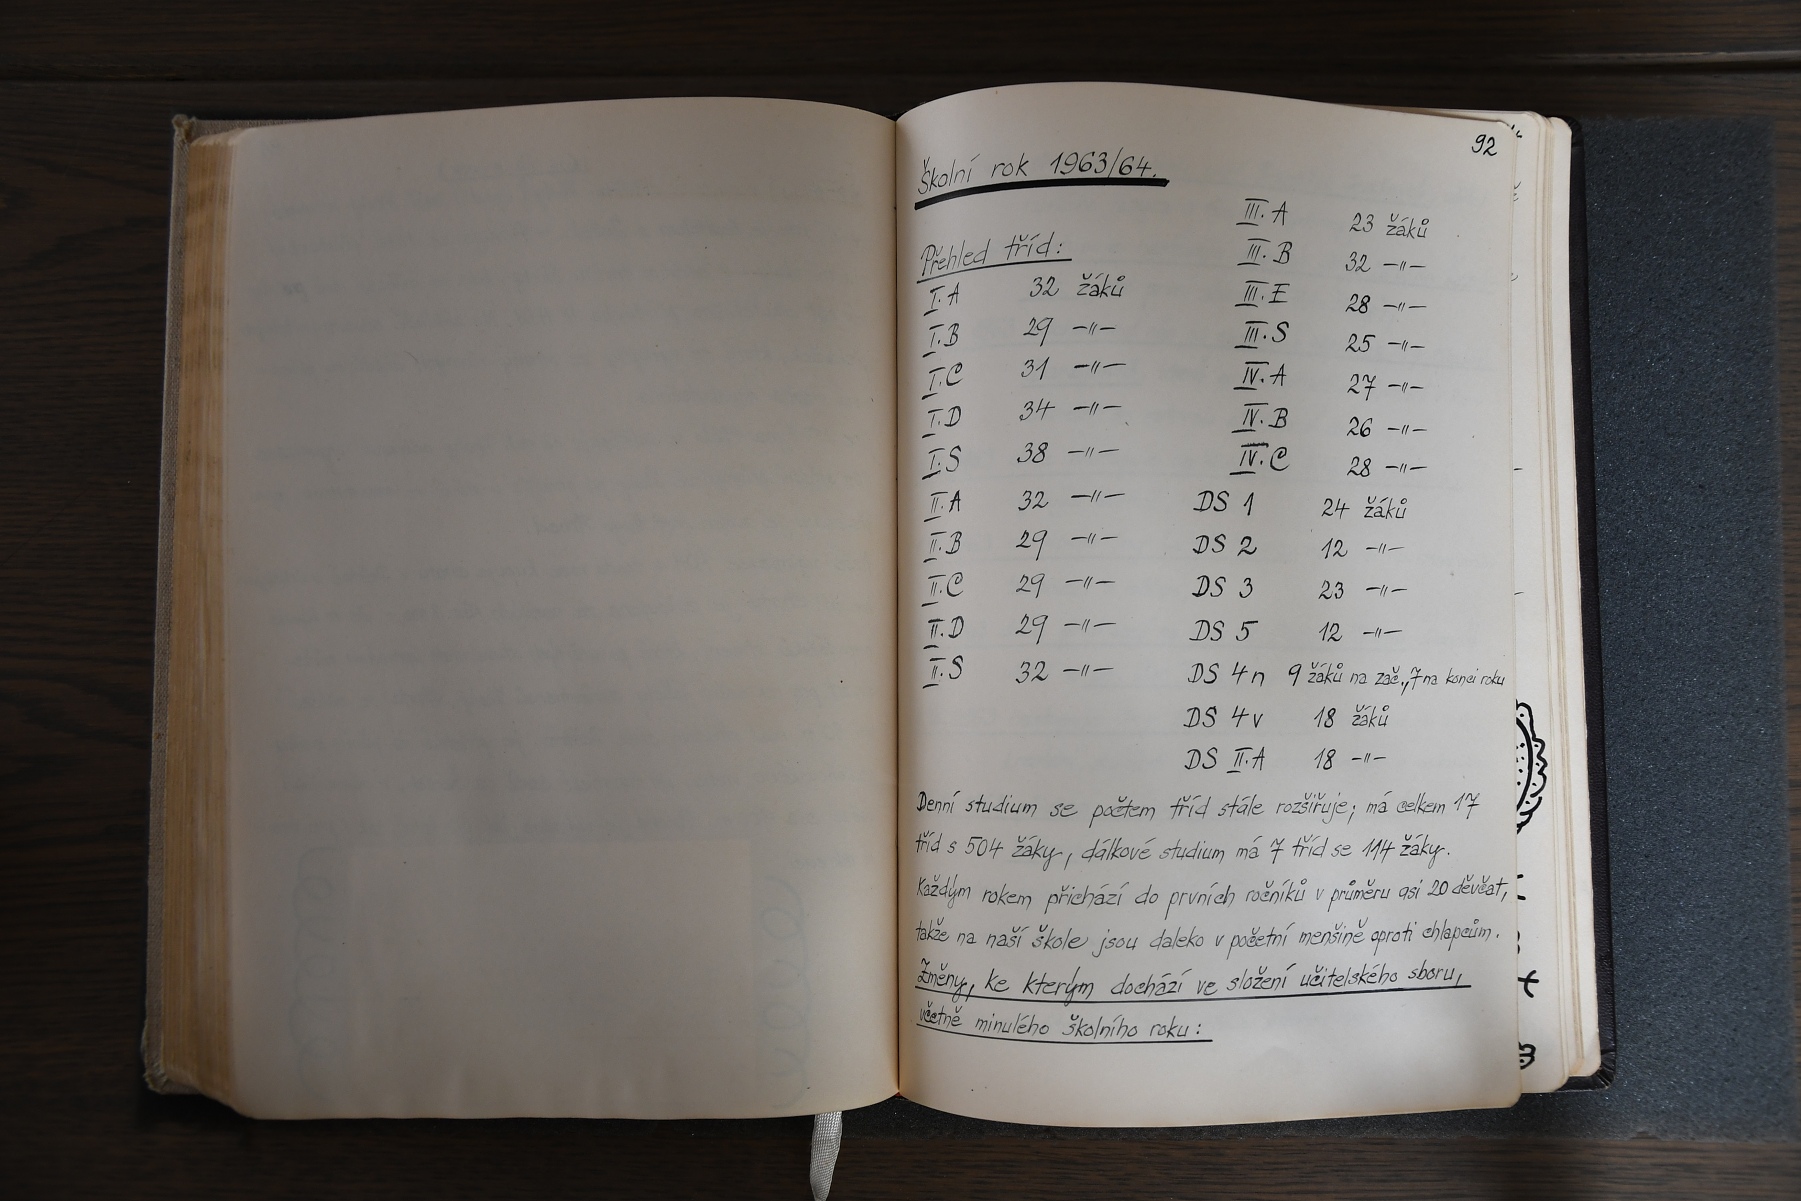 92
Školní rok 1963/64.
Přehled tříd:
I.A 32 žáků
I.B 29 —"—
I.C 31 —"—
I.D 34 —"—
I.S 38 —"—
II.A 32 —"—
II.B 29 —"—
II.C 29 —"—
II.D 29 —"—
II.S 32 —"—
III.A 23 žáků
III.B 32 —"—
III.E 28 —"—
III.S 25 —"—
IV.A 27 —"—
IV.B 26 —"—
IV.C 28 —"—
DS 1 24 žáků
DS 2 12 —"—
DS 3 23 —"—
DS 5 12 —"—
DS 4n 9 žáků na zač., 7 na konci roku
DS 4v 18 žáků
DS II.A 18 —"—
Denní studium se počtem tříd stále rozšiřuje; má celkem 17
tříd s 504 žáky, dálkové studium má 7 tříd se 114 žáky.
Každým rokem přichází do prvních ročníků v průměru asi 20 děvčat,
takže na naší škole jsou daleko v početní menšině oproti chlapcům.
Změny, ke kterým dochází ve složení učitelského sboru,
včetně minulého školního roku: